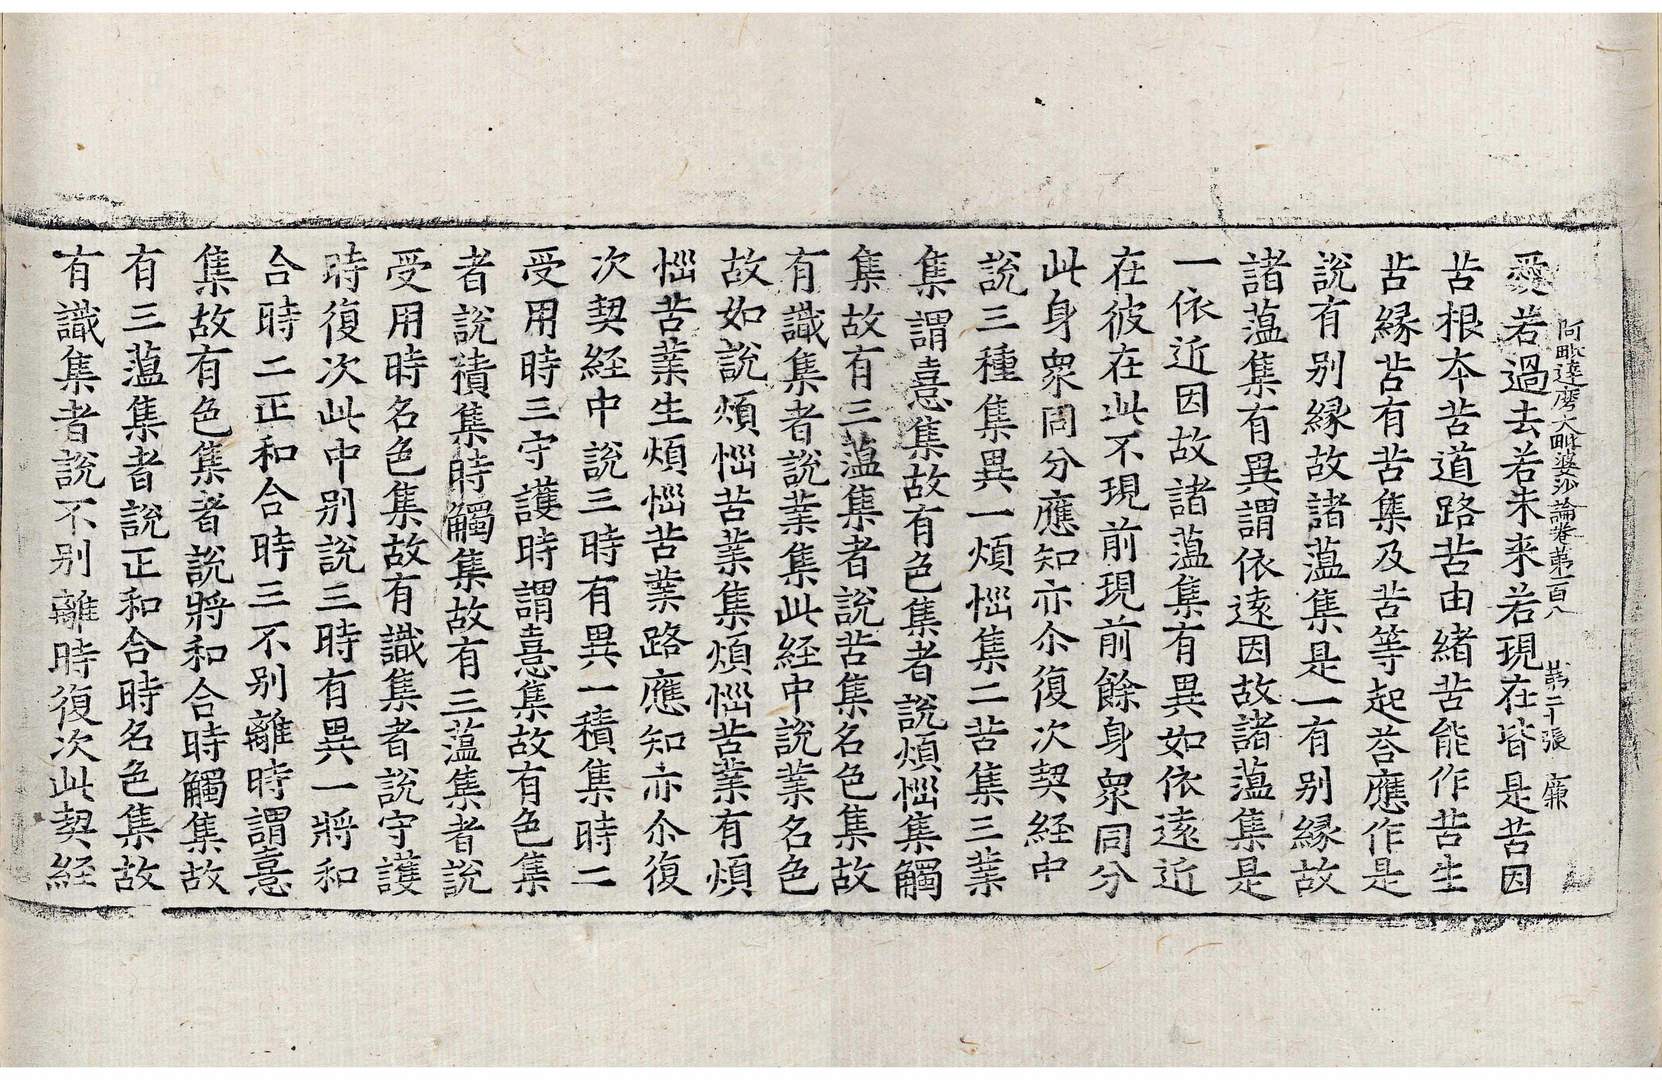 阿毗達磨大毗婆沙論卷第一百八　第二十張　廉
愛若過去若未来若現在皆是苦因
苦根夲苦道路苦由緒苦能作苦生
苦縁苦有苦集及苦等起荅應作是
說有别縁故諸蕰集是一有别縁故
諸蕰集有異謂依遠因故諸蕰集是
一依近因故諸蕰集有異如依遠近
在彼在此不現前現前餘身衆同分
此身衆同分應知亦尒復次契経中
說三種集異一煩惱集二苦集三業
集謂憙集故有色集者說煩惱集觸
集故有三蕰集者說苦集名色集故
有識集者說業集此経中說業名色
故如說煩惱苦業集煩惱苦業有煩
惱苦業生煩惱苦業路應知亦尒復
次契経中說三時有異一積集時二
受用時三守護時謂憙集故有色集
者說積集時觸集故有三蕰集者說
受用時名色集故有識集者說守護
時復次此中别說三時有異一將和
合時二正和合時三不别離時謂憙
集故有色集者說將和合時觸集故
有三蕰集者說正和合時名色集故
有識集者說不别離時復次此契経